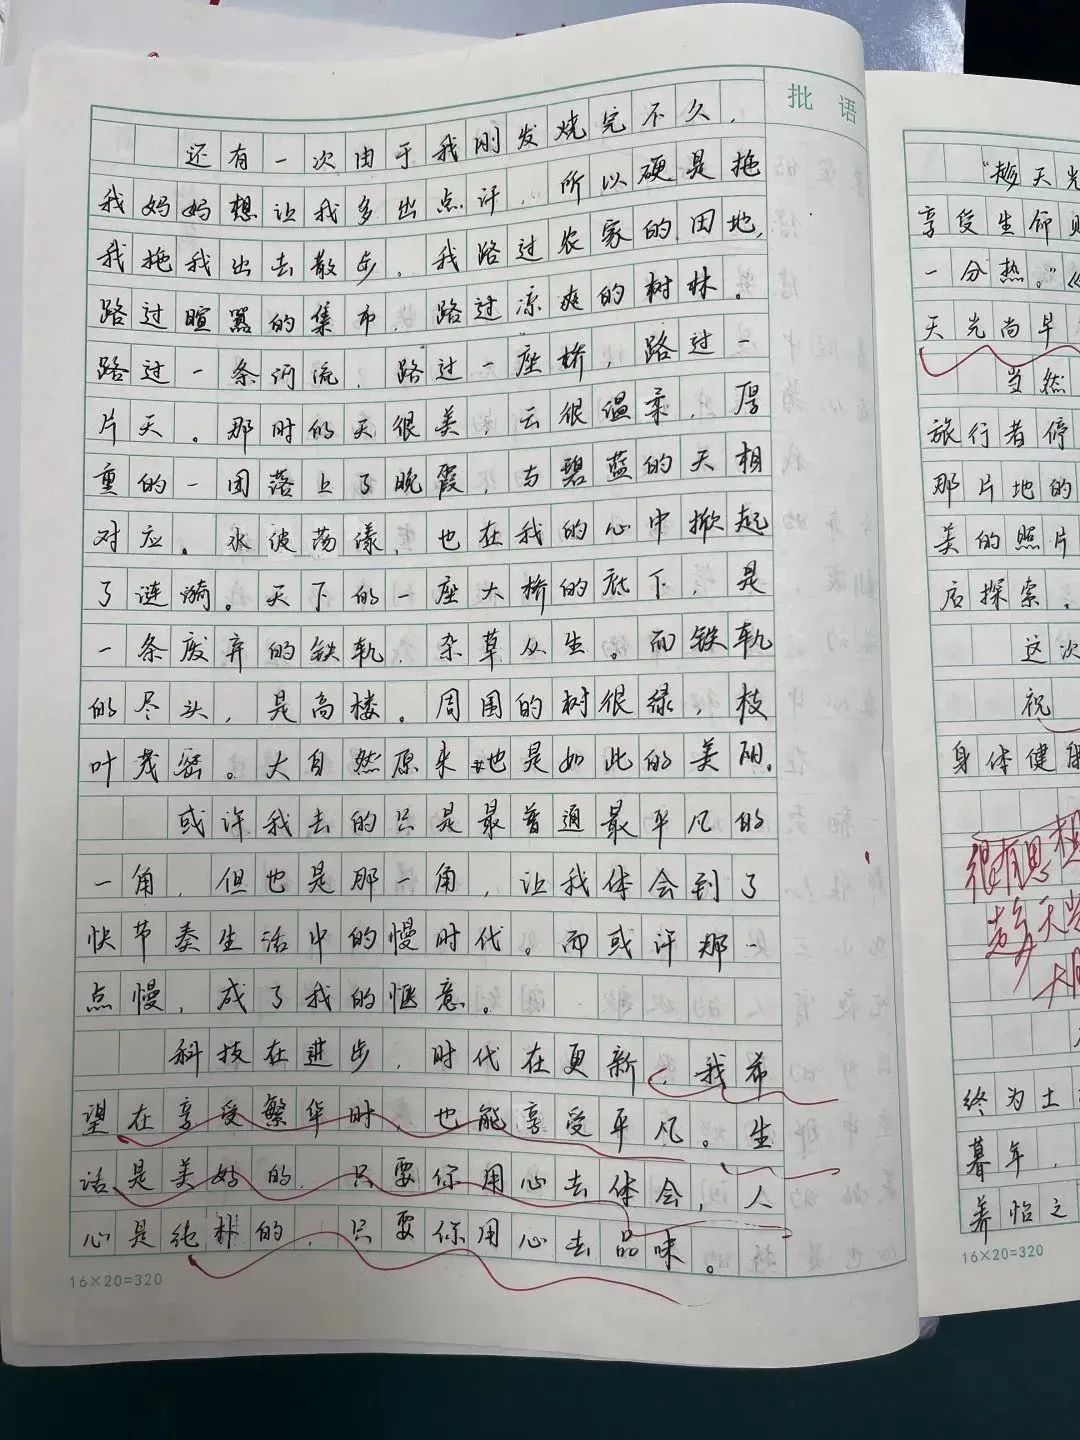 批 语
还有一次由于我刚发烧完不久，
我妈妈想让我多出点汗，所以硬是拖
我拖我出去散步。我路过农家的田地，
路过喧嚣的集市，路过凉爽的树林。
路过一条河流，路过一座桥，路过一
片天。那时的天很美，云很温柔，厚
重的一团落上了晚霞，与碧蓝的天相
对应。水波荡漾，也在我的心中掀起
了涟漪。天下的一座大桥的底下，是
一条废弃的铁轨，杂草从生。而铁轨
的尽头，是高楼。周围的树很绿，枝
叶茂密。大自然原来也是如此的美丽。
或许我去的只是最普通最平凡的
一角，但也是那一角，让我体会到了
快节奏生活中的慢时代。而或许那一
点慢，成了我的惬意。
科技在进步，时代在更新，我希
望在享受繁华时，也能享受平凡。生
活是美好的，只要你用心去体会，人
心是纯朴的，只要你用心去品味。
16×20=320
“趁天光
享受生命
一分热。”《
天光尚早
当然
旅行者停
那片地的
美的照片
后探索。
这次
祝
身体健
很有思想
趁天光
终为土
暮年，
养怡之
16×20=320